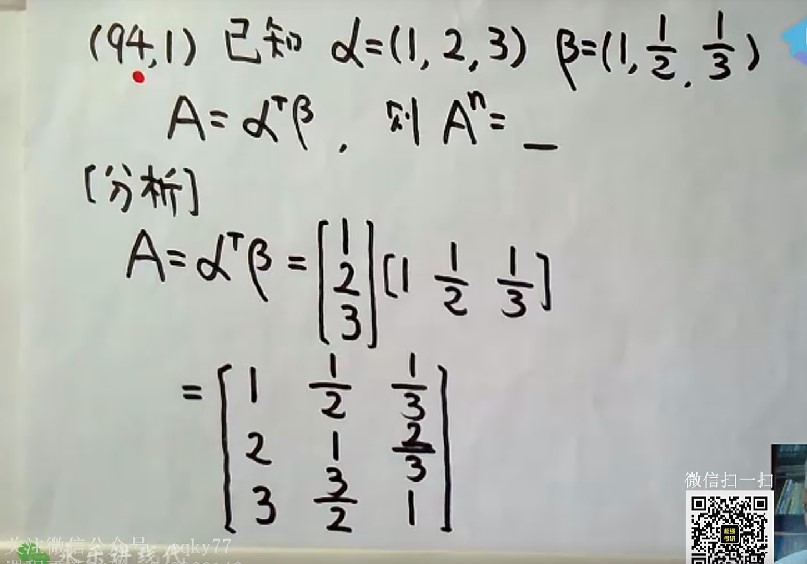 (94,1) 已知 α=(1,2,3) β=(1,1/2,1/3)
A=αᵀβ, 则 Aⁿ=_
[分析]
A=αᵀβ=[1 2 3][1 1/2 1/3]
=[1 1/2 1/3
2 1 2/3
3 3/2 1]
微信扫一扫
关注微信公众号
qky77